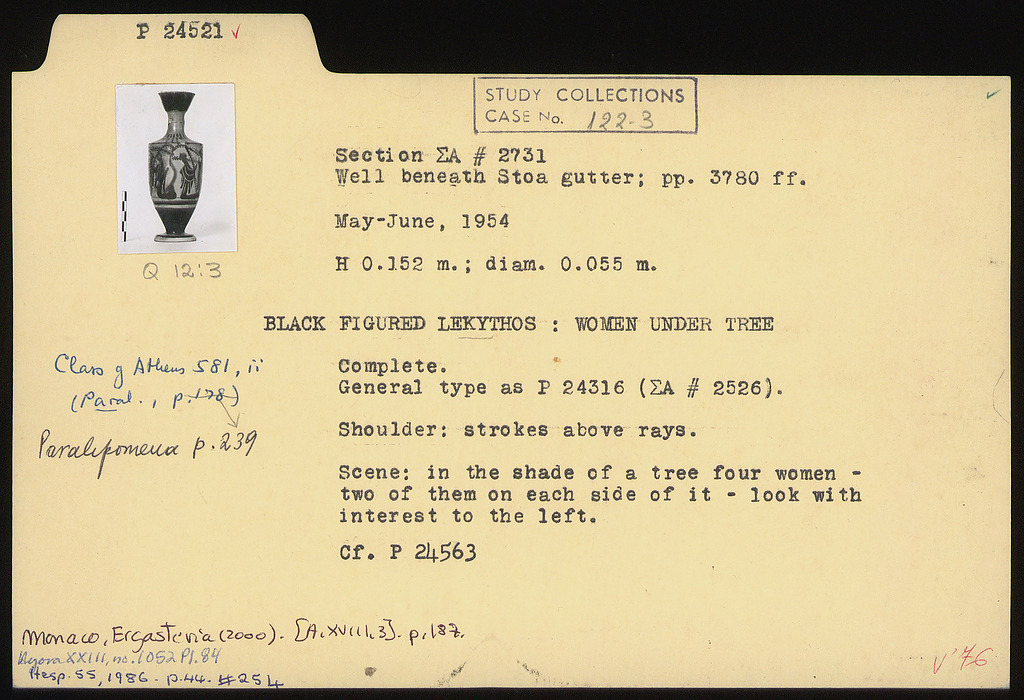 P 24521 ✓
STUDY COLLECTIONS
CASE No. 122-3
Section ΣA # 2731
Well beneath Stoa gutter; pp. 3780 ff.
May-June, 1954
H 0.152 m.; diam. 0.055 m.
Q 12:3
BLACK FIGURED LEKYTHOS : WOMEN UNDER TREE
Class of Athens 581, ii
(Paral., p. 178)
Paralipomena p. 239
Complete.
General type as P 24316 (ΣA # 2526).
Shoulder: strokes above rays.
Scene: in the shade of a tree four women -
two of them on each side of it - look with
interest to the left.
Cf. P 24563
Monaco, Ergasteria (2000). [A.XVIII.3]. p. 187.
Agora XXIII, no. 1052 Pl. 84
Hesp. 55, 1986. p. 44. #254
✓ '76